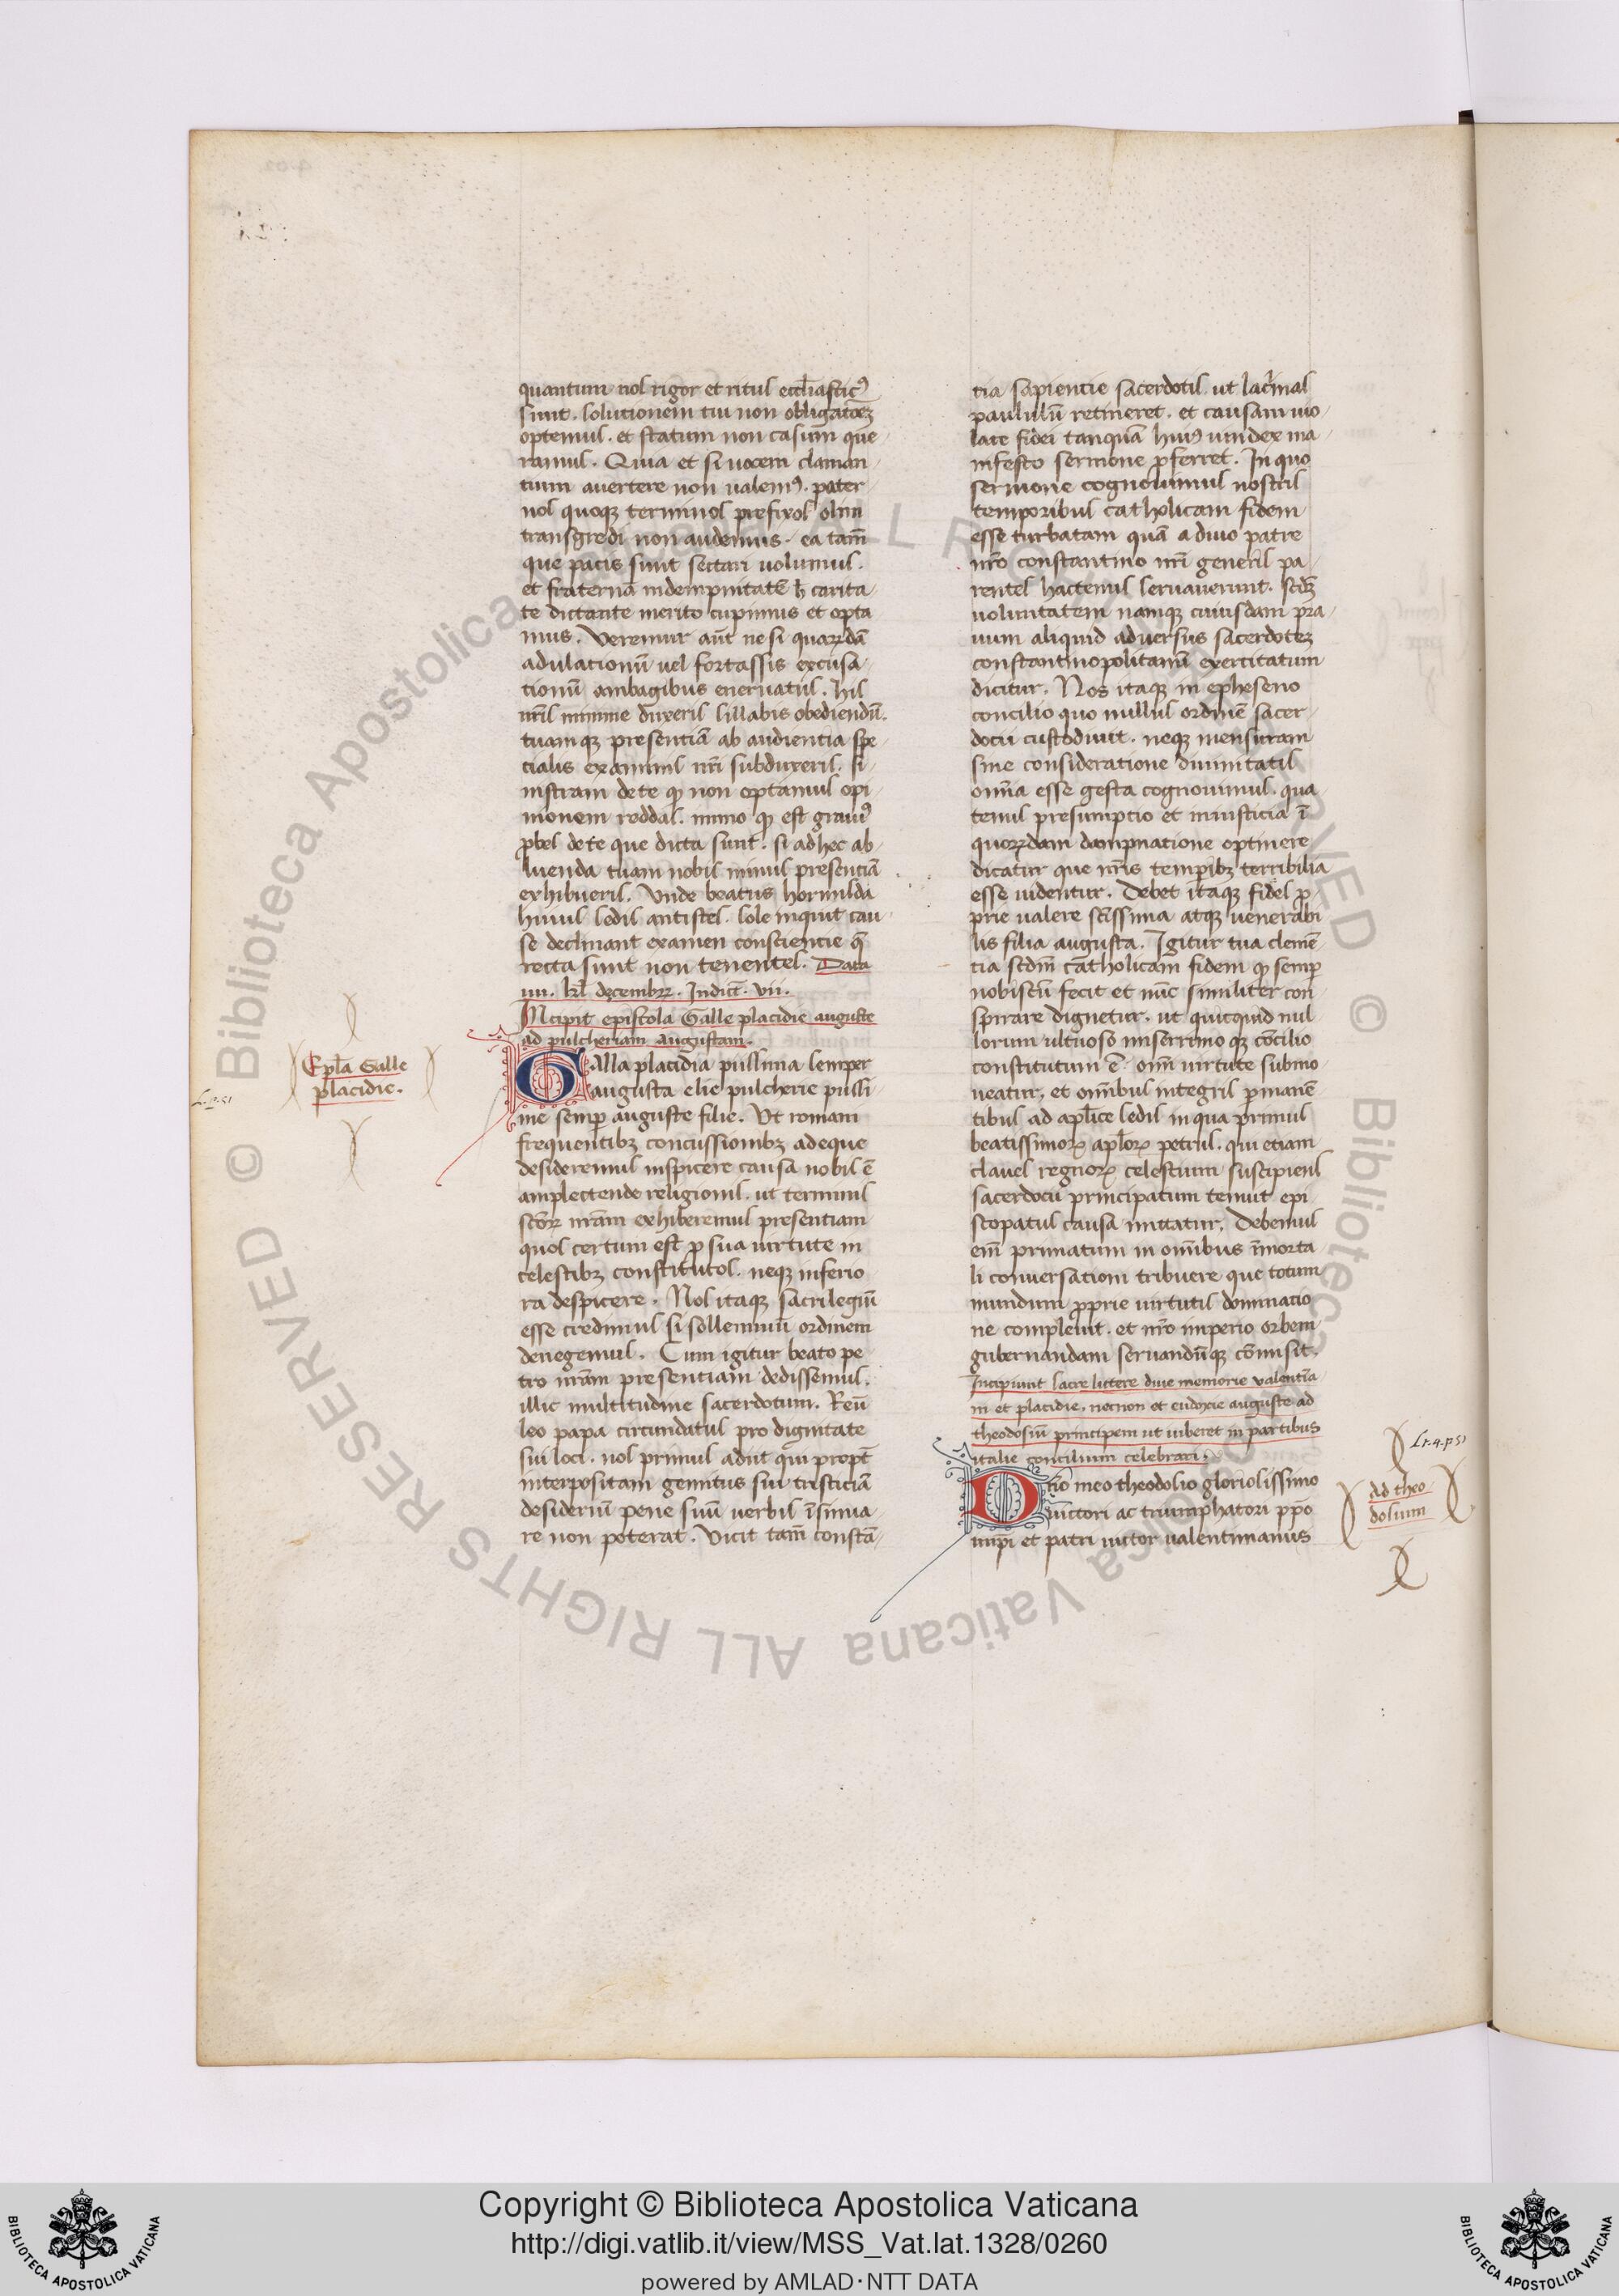 quantum nos rigor et ritus eccl̄iasticꝰ
sunt. solutionem tui non obligatōeꝫ
optemus. et statum non casum que
ramus. Quia et si uocem claman
tium auertere non ualemꝰ. pater
nos quoqꝫ terminos prefixos olim
transgredi non audemus. ea tam̄
que pacis sunt sectari uolumus.
et fraternā indempnitatē h̄ carita
te dictante merito cupimus et opta
mus. Veremur aūt ne si quarūdā
adulationū uel fortassis excusa
tionū ambagibus eneruatus. his
nr̄is minime duxeris sillabis obediendū.
tuamqꝫ presentiā ab audientia spe
cialis examinis nr̄i subduxeris. si
nistram de te qͩ non optamus opi
nionem reddas. immo qͩ est grauiꝰ
ꝓbes de te que dicta sunt. si ad hec ab
luenda tuam nobis minus presentiā
exhibueris. Vnde beatus hormisda
huius sedis antistes. sole inquit cau
se declinant examen conscientie q̄
recta sunt non tenentes. Data
iiii. kl̄ decembrꝝ. Indict̄. vii.
Incipit epistola Galle placidie auguste
ad pulcheriam augustam.
Galla placidia piissima semper
augusta elie pulcherie piissi
me semꝑ auguste filie. Vt romam
frequentibꝫ concussionibꝫ adeque
desideremus inspicere causa nobis ē
amplectende religionis. ut terminis
sc̄orꝝ nrām exhiberemus presentiam
quos certum est ꝓ sua uirtute in
celestibꝫ constitutos. neqꝫ inferio
ra despicere. Nos itaqꝫ sacrilegiū
esse credimus si sollemniū ordinem
denegemus. Cum igitur beato pe
tro nrām presentiam dedissemus.
illic multitudine sacerdotum. Reū
leo papa circundatus pro dignitate
sui loci. nos primus adiit qui propt̄
interpositam gemitus sui tristiciā
desideriū pene suū uerbis īsinua
re non poterat. Vicit tam̄ constā
tia sapientie sacerdotis ut lacrimas
paululū retineret. et causam uio
late fidei tanquā huiꝰ uindex ma
nifesto sermone ꝓferret. In quo
sermone cognouimus nostris
temporibus catholicam fidem
esse turbatam quā a diuo patre
nrō constantino nr̄i generis pa
rentes hactenus seruauerunt. scd̄ꝫ
uoluntatem namqꝫ cuiusdam pra
uum aliquid aduersus sacerdoteꝫ
constantinopolitanū exercitatum
dicitur. Nos itaqꝫ in epheseno
concilio quo nullus ordinē sacer
docii custodiuit. neqꝫ mensuram
sine consideratione diuinitatis
omīa esse gesta cognouimus. qua
tenus presumptio et iniusticia ī
quorūdam dampnatione optinere
dicatur que nr̄is tempibꝫ terribilia
esse uidentur. Debet itaqꝫ fides ꝓ
prie ualere sc̄issima atqꝫ uenerabi
lis filia augusta. Igitur tua clemē
tia scdm̄ catholicam fidem qͩ semꝑ
nobiscū fecit et nūc similiter con
spirare dignetur. ut quicquid nul
lorum ultuoso miserrimo qꝫ cōcilio
constitutum ē omī uirtute submo
ueatur. et omībus integris ꝑmanē
tibus ad apl̄ice sedis in qua primus
beatissimorꝝ apl̄orꝝ petrus. qui etiam
claues regnorꝝ celestium suscipiens
sacerdocii principatum tenuit epi
scopatus causa mittatur. Debemus
em̄ primatum in omībus īmorta
li conuersationi tribuere que totum
mundum ꝓprie uirtutis dominatio
ne compleuit. et nrō imperio orbem
gubernandam seruandūqꝫ cōmisit.
Incipiunt sacre littere diue memorie valentīa
ni et placidie. necnon et eudoxie auguste ad
theodosiū principem ut iuberet in partibus
italie concilium celebrari.
Dn̄o meo theodosio gloriosissimo
uictori ac triumphatori pꝓo
imp̄i et patri uictor ualentinianus
Epl̄a Galle
placidie.
L. p. 51
Lr. 4. p 51
ad theo
dosium
Copyright © Biblioteca Apostolica Vaticana
http://digi.vatlib.it/view/MSS_Vat.lat.1328/0260
powered by AMLAD·NTT DATA
BIBLIOTECA APOSTOLICA VATICANA
BIBLIOTECA APOSTOLICA VATICANA
© Biblioteca Apostolica Vaticana ALL RIGHTS RESERVED